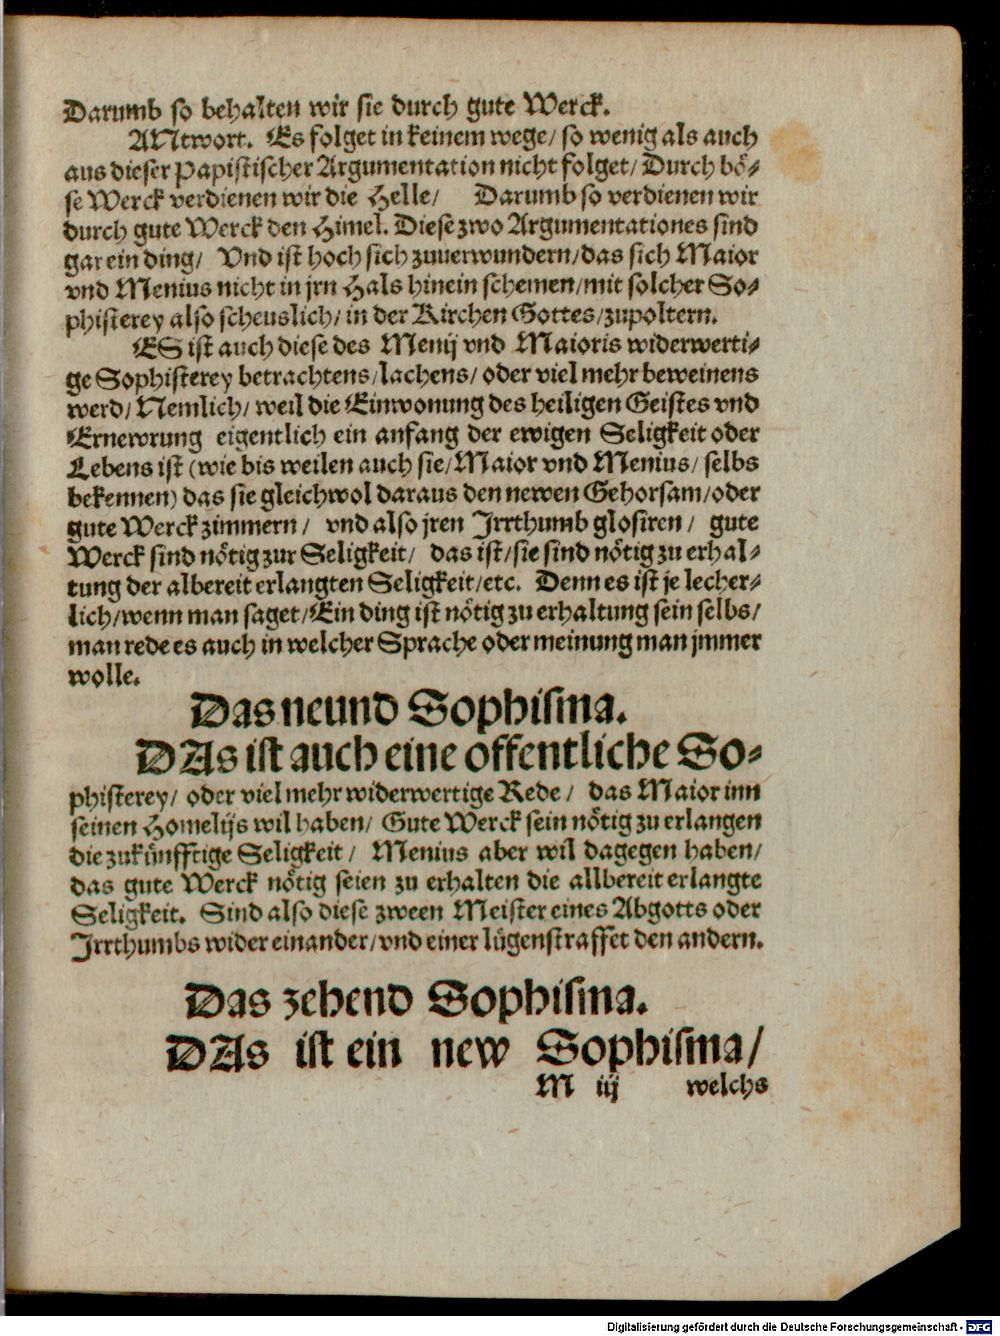 Darumb so behalten wir sie durch gute Werck.
ANtwort. Es folget in keinem wege/ so wenig als auch
aus dieser Papistischer Argumentation nicht folget/ Durch bö⸗
se Werck verdienen wir die Helle/ Darumb so verdienen wir
durch gute Werck den Himel. Diese zwo Argumentationes sind
gar ein ding/ Vnd ist hoch sich zuuerwundern/ das sich Maior
vnd Menius nicht in jrn Hals hinein schemen/ mit solcher So⸗
phisterey also scheuslich/ in der Kirchen Gottes/ zupoltern.
ES ist auch diese des Menij vnd Maioris widerwerti⸗
ge Sophisterey betrachtens/ lachens/ oder viel mehr beweinens
werd/ Nemlich/ weil die Einwonung des heiligen Geistes vnd
Ernewrung eigentlich ein anfang der ewigen Seligkeit oder
Lebens ist (wie bis weilen auch sie/ Maior vnd Menius/ selbs
bekennen) das sie gleichwol daraus den newen Gehorsam/ oder
gute Werck zimmern/ vnd also jren Jrrthumb glosiren/ gute
Werck sind nötig zur Seligkeit/ das ist/ sie sind nötig zu erhal⸗
tung der albereit erlangten Seligkeit/ etc. Denn es ist je lecher⸗
lich/ wenn man saget/ Ein ding ist nötig zu erhaltung sein selbs/
man rede es auch in welcher Sprache oder meinung man jmmer
wolle.
Das neund Sophisma.
DAs ist auch eine offentliche So⸗
phisterey/ oder viel mehr widerwertige Rede/ das Maior inn
seinen Homelijs wil haben/ Gute Werck sein nötig zu erlangen
die zukünfftige Seligkeit/ Menius aber wil dagegen haben/
das gute Werck nötig seien zu erhalten die allbereit erlangte
Seligkeit. Sind also diese zween Meister eines Abgotts oder
Jrrthumbs wider einander/ vnd einer lügenstraffet den andern.
Das zehend Sophisma.
DAs ist ein new Sophisma/
M iij welchs
Digitalisierung gefördert durch die Deutsche Forschungsgemeinschaft - DFG